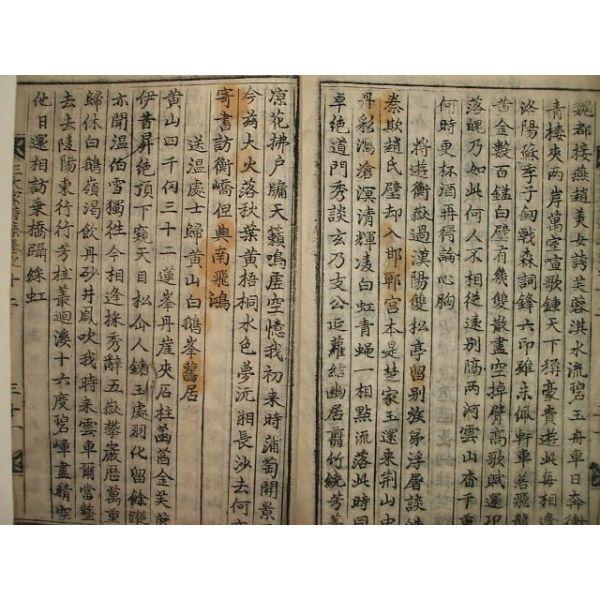 魏都接燕趙美女誇芙蓉淇水流碧玉舟車日奔衝
青樓夾兩岸萬室喧歌鍾天下稱豪貴此每相逢
洛陽蘇季子劒戟森詞鋒六印雖未佩軒車若飛龍
黃金數百鎰白璧有幾雙散盡空掉臂高歌賦還邛
落魄乃如此何人不相從遠別隔兩河雲山杳千重
何時更杯酒再得論心胸
將遊衡嶽過漢陽雙松亭留別族弟浮屠談皓
秦欺趙氏璧却入邯鄲宮本是楚家玉還來荊山中
丹彩瀉滄溟清輝凌白虹青蠅一相點流落此時同
卓絕道門秀談玄乃支公延蘿結幽居剪竹繞芳
凉花拂戶牖天籟鳴虛空憶我初來時蒲萄開景風
今茲大火落秋葉黃梧桐水色夢沅湘長沙去何
寄書訪衡嶠但與南飛鴻
送溫處士歸黃山白鵝峯舊居
黃山四千仞三十二蓮峯丹崖夾石柱菡萏金芙蓉
伊昔昇絕頂下窺天目松仚人鍊玉處羽化留餘蹤
亦聞溫伯雪獨往今相逢採秀辭五嶽攀巖歷萬重
歸休白鵝嶺渴飲丹砂井鳳吹我時來雲車爾當整
去去陵陽東行行芳桂叢迴溪十六度碧嶂盡晴空
他日還相訪乘橋躡綵虹
三十一